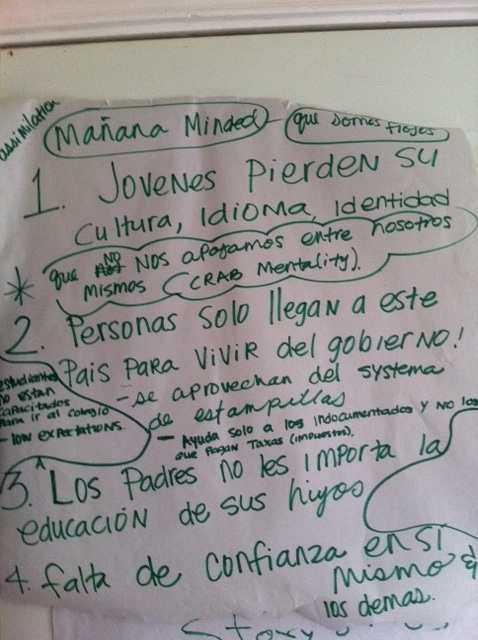 assimilation
Mañana Minded - que somos flojos
1. Jovenes pierden su
cultura, idioma, identidad
* que NO nos apoyamos entre nosotros
mismos (CRAB Mentality).
2. Personas solo llegan a este
pais para vivir del gobierno!
- se aprovechan del systema
de estampillas
- Ayuda solo a los indocumentados y no los
que pagan taxas (impuestos).
estudiantes
no estan
capacitados
para ir al colegio
- low expectations.
3. Los Padres no les importa la
educación de sus hiyos
4. falta de confianza en si
mismo &
los demas.